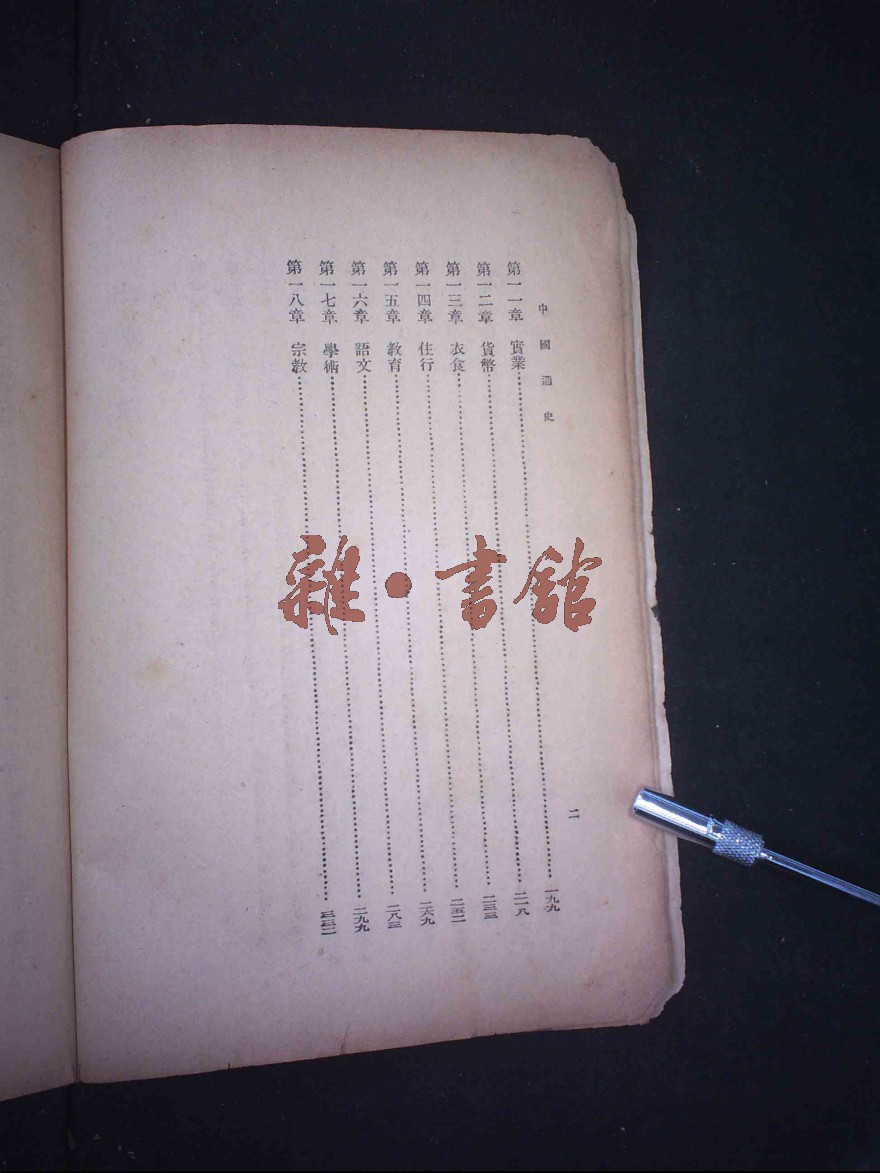 中國通史
二
第一一章 實業……一九九
第一二章 貨幣……二一八
第一三章 衣食……二三三
第一四章 住行……二五二
第一五章 教育……二六九
第一六章 語文……二八三
第一七章 學術……二九九
第一八章 宗教……三三二
雜·書舘